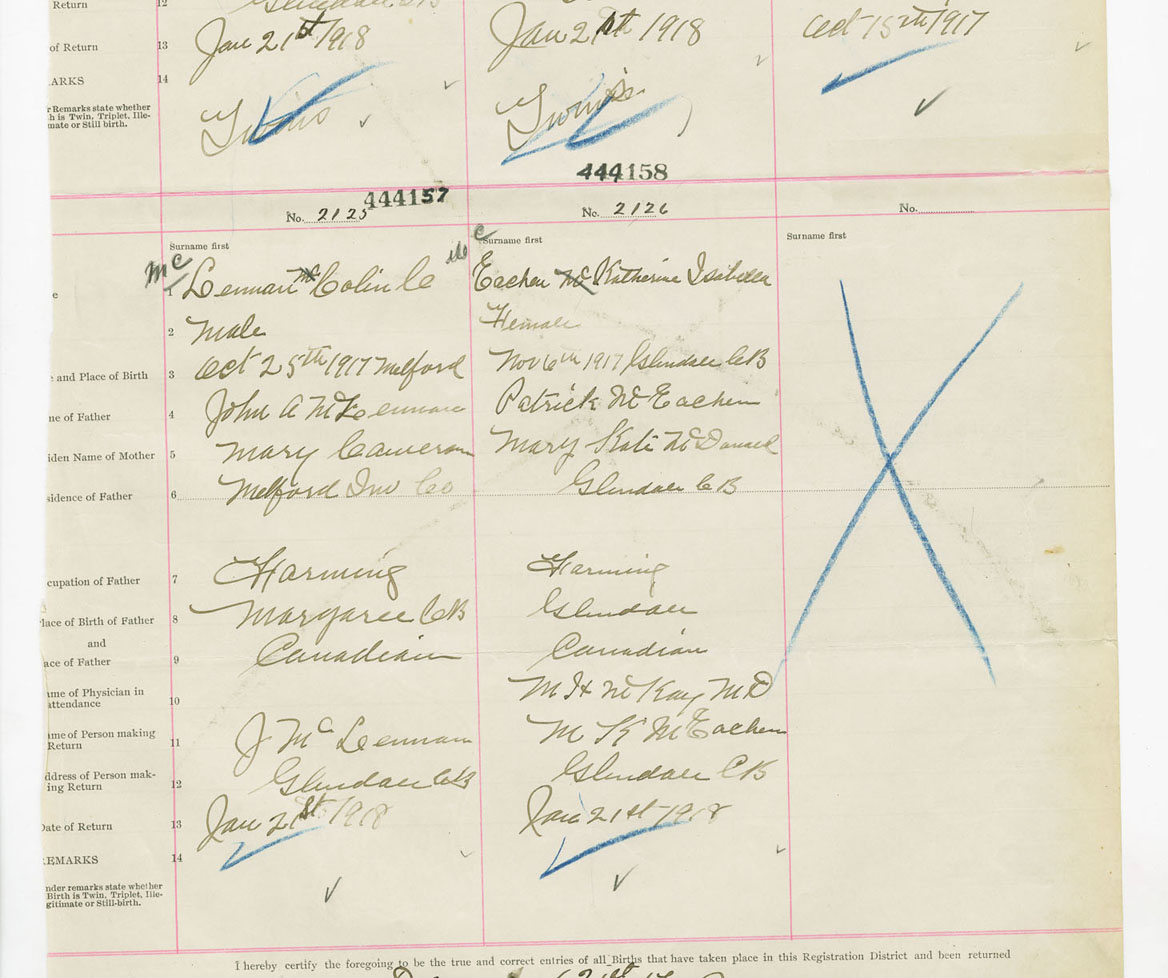 Return 12 Glendale CB
of Return 13 Jan 21st 1918 Jan 21st 1918 Oct 15th 1917
ARKS 14
r Remarks state whether
h is Twin, Triplet, Ille-
mate or Still birth.
Twins Twins
444157 444158
No. 2125 No. 2126 No.
Surname first Surname first Surname first
Mc Mc
e 1 Lennan Mc Colin C Eachen Mc Katherine Isabella
2 Male Female
e and Place of Birth 3 Oct 25th 1917 Melford Nov 6th 1917 Glendale CB
ne of Father 4 John A McLennan Patrick McEachen
iden Name of Mother 5 Mary Cameron Mary Kate McDonald
sidence of Father 6 Melford Inv Co Glendale CB
cupation of Father 7 Farming Farming
lace of Birth of Father 8 Margaree CB Glendale
and
ace of Father 9 Canadian Canadian
me of Physician in
attendance 10 M H McKay MD
me of Person making
Return 11 J McLennan M K McEachen
ddress of Person mak-
ing Return 12 Glendale CB Glendale CB
Date of Return 13 Jan 21st 1918 Jan 21st 1918
EMARKS 14
nder remarks state whether
Birth is Twin, Triplet, Ille-
gitimate or Still-birth.
I hereby certify the foregoing to be the true and correct entries of all Births that have taken place in this Registration District and been returned